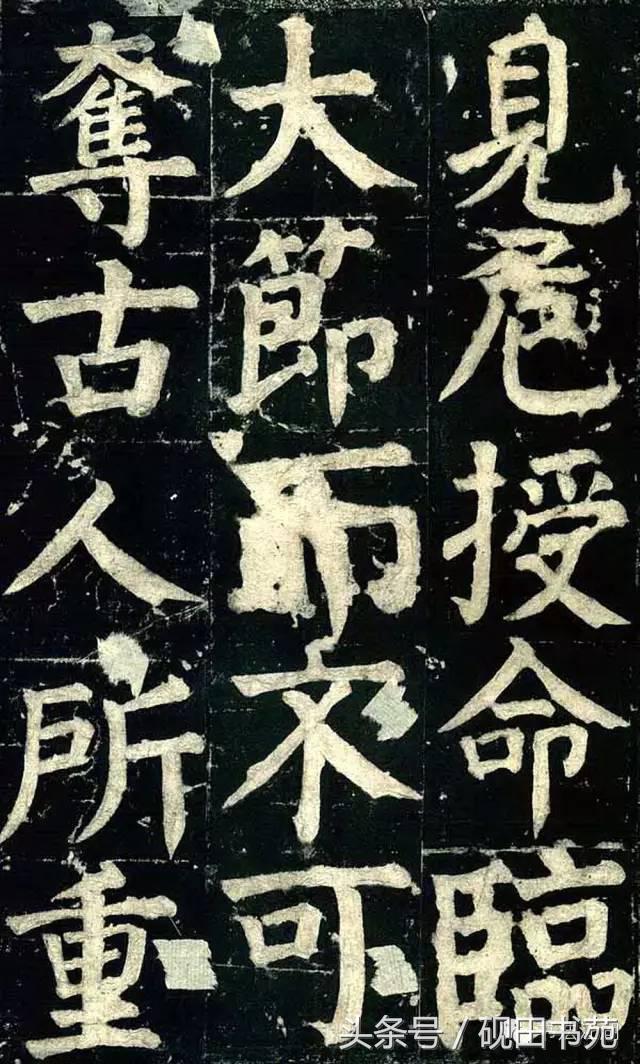 見危授命臨
大節而不可
奪古人所重
头条号／砚田书苑